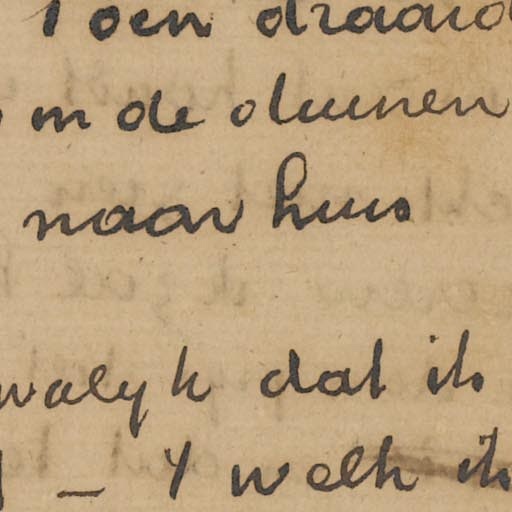 Toen draaid
in de duinen
naar huis
walyk dat ik
_ Y welk ik